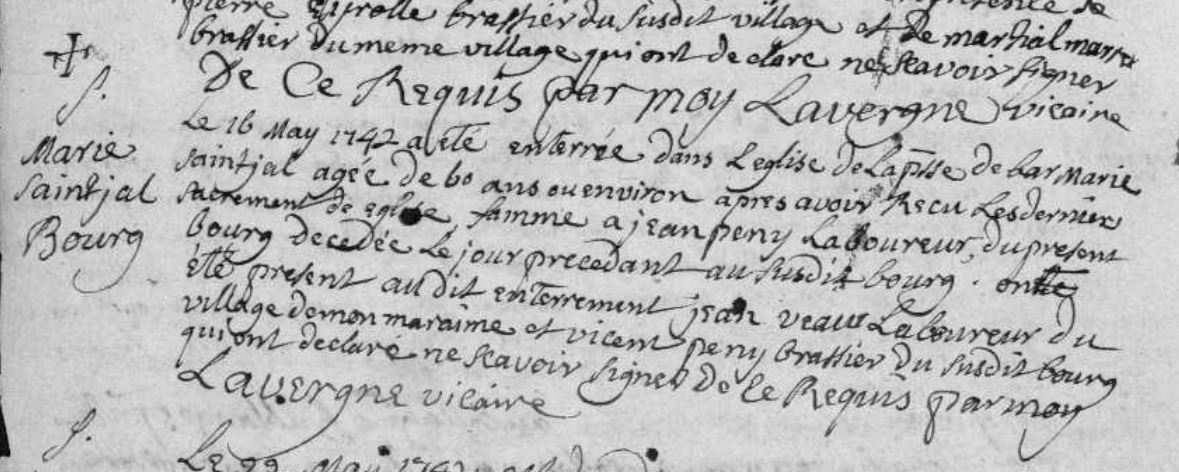 pierre eyrolle brassier du susdit village et De martial
brassier du meme village qui ont declare ne scavoir signer
De Ce Requis par moy Lavergne vicaire
f.
Marie
saintjal
Bourg
Le 16 May 1742 a eté enterrée dans Leglise de La psse de bar Marie
saintjal agée de 60 ans ou environ apres avoir Recu Les dernier
sacrement de eglise, famme a jean peny Laboureur, du present
bourg decedée Le jour precedant au susdit bourg. ont
été present au dit enterrement jean veaux Laboureur du
village de mon maraime et vicent peny brassier du susdit bourg
qui ont declaré ne scavoir signer De Ce Requis par moy
Lavergne vicaire
f.
Le May 1742